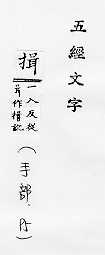 五經文字
揖
一入反從
咠作揖訛
(手部, P5)